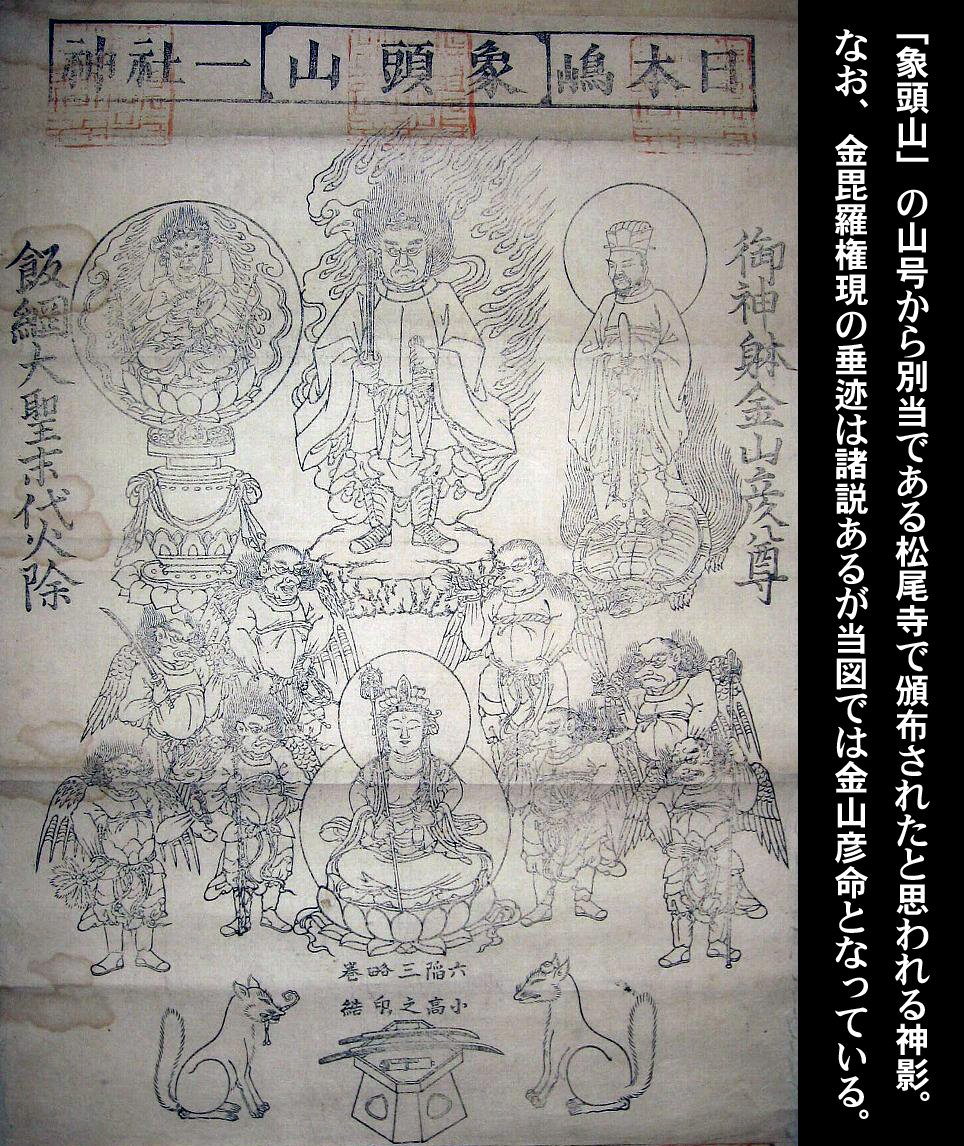 「象頭山」の山号から別当である松尾寺で頒布されたと思われる神影。
なお、金毘羅権現の垂迹は諸説あるが当図では金山彦命となっている。
日本嶋
象頭山
一社神
御神躰金山彦尊
飯綱大聖末代火除
六韜三略巻
小高之印結